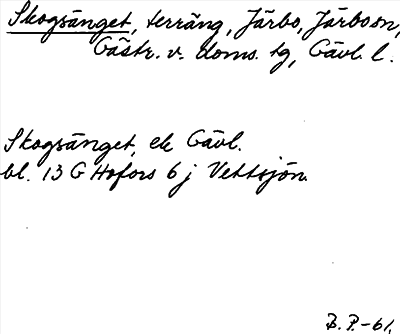 Skogsänget, terräng, Järbo, Järbo sn,
Gästr. v. doms. tg, Gävl. l.
Skogsänget, ek Gävl.
bl. 13 G Hofors 6 j Vettsjön.
B. P. -61.